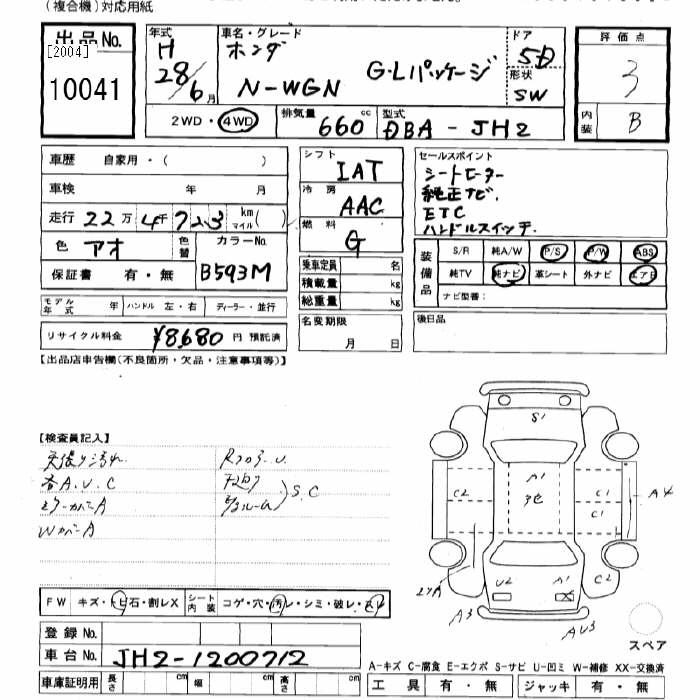 (複合機)対応用紙
出品No.
[2004]
10041
年式
H
28/6月
車名・グレード
ホンダ
N-WGN G・Lパッケージ
ドア
5D
形状
SW
評価点
3
内装
B
2WD・4WD
排気量
660cc
型式
DBA-JH2
車歴 自家用・( )
車検 年 月
走行 22万4千723 km マイル( )
色 アオ
色替
カラーNo.
B593M
保証書 有・無
モデル年式 年 ハンドル 左・右 ディーラー・並行
リサイクル料金 ¥8680円 預託済
シフト
IAT
冷房
AAC
燃料
G
乗車定員 名
積載量 kg
総重量 kg
名変期限
月 日
セールスポイント
シートヒーター
純正ナビ.
ETC
ハンドルスイッチ.
装備品
S/R 純A/W P/S P/W ABS
純TV 純ナビ 革シート 外ナビ エアB
ナビ型番:
後日品
【出品店申告欄(不良箇所・欠品・注意事項等)】
【検査員記入】
天張り汚れ
各A.U.C
ミラーカバーA
WカバーA
S.C
FW キズ・トビ石・割レX
シート内装 コゲ・穴・汚レ・シミ・破レ・スレ
登録No.
車台No. JH2-1200712
車庫証明用 長さ cm 幅 cm 高さ cm
S1
A1
C2
C1
C1
A4
U2
A1
X
C2
A3
AU3
スペア
A-キズ C-腐食 E-エクボ S-サビ U-凹ミ W-補修 XX-交換済
工具 有・無 ジャッキ 有・無